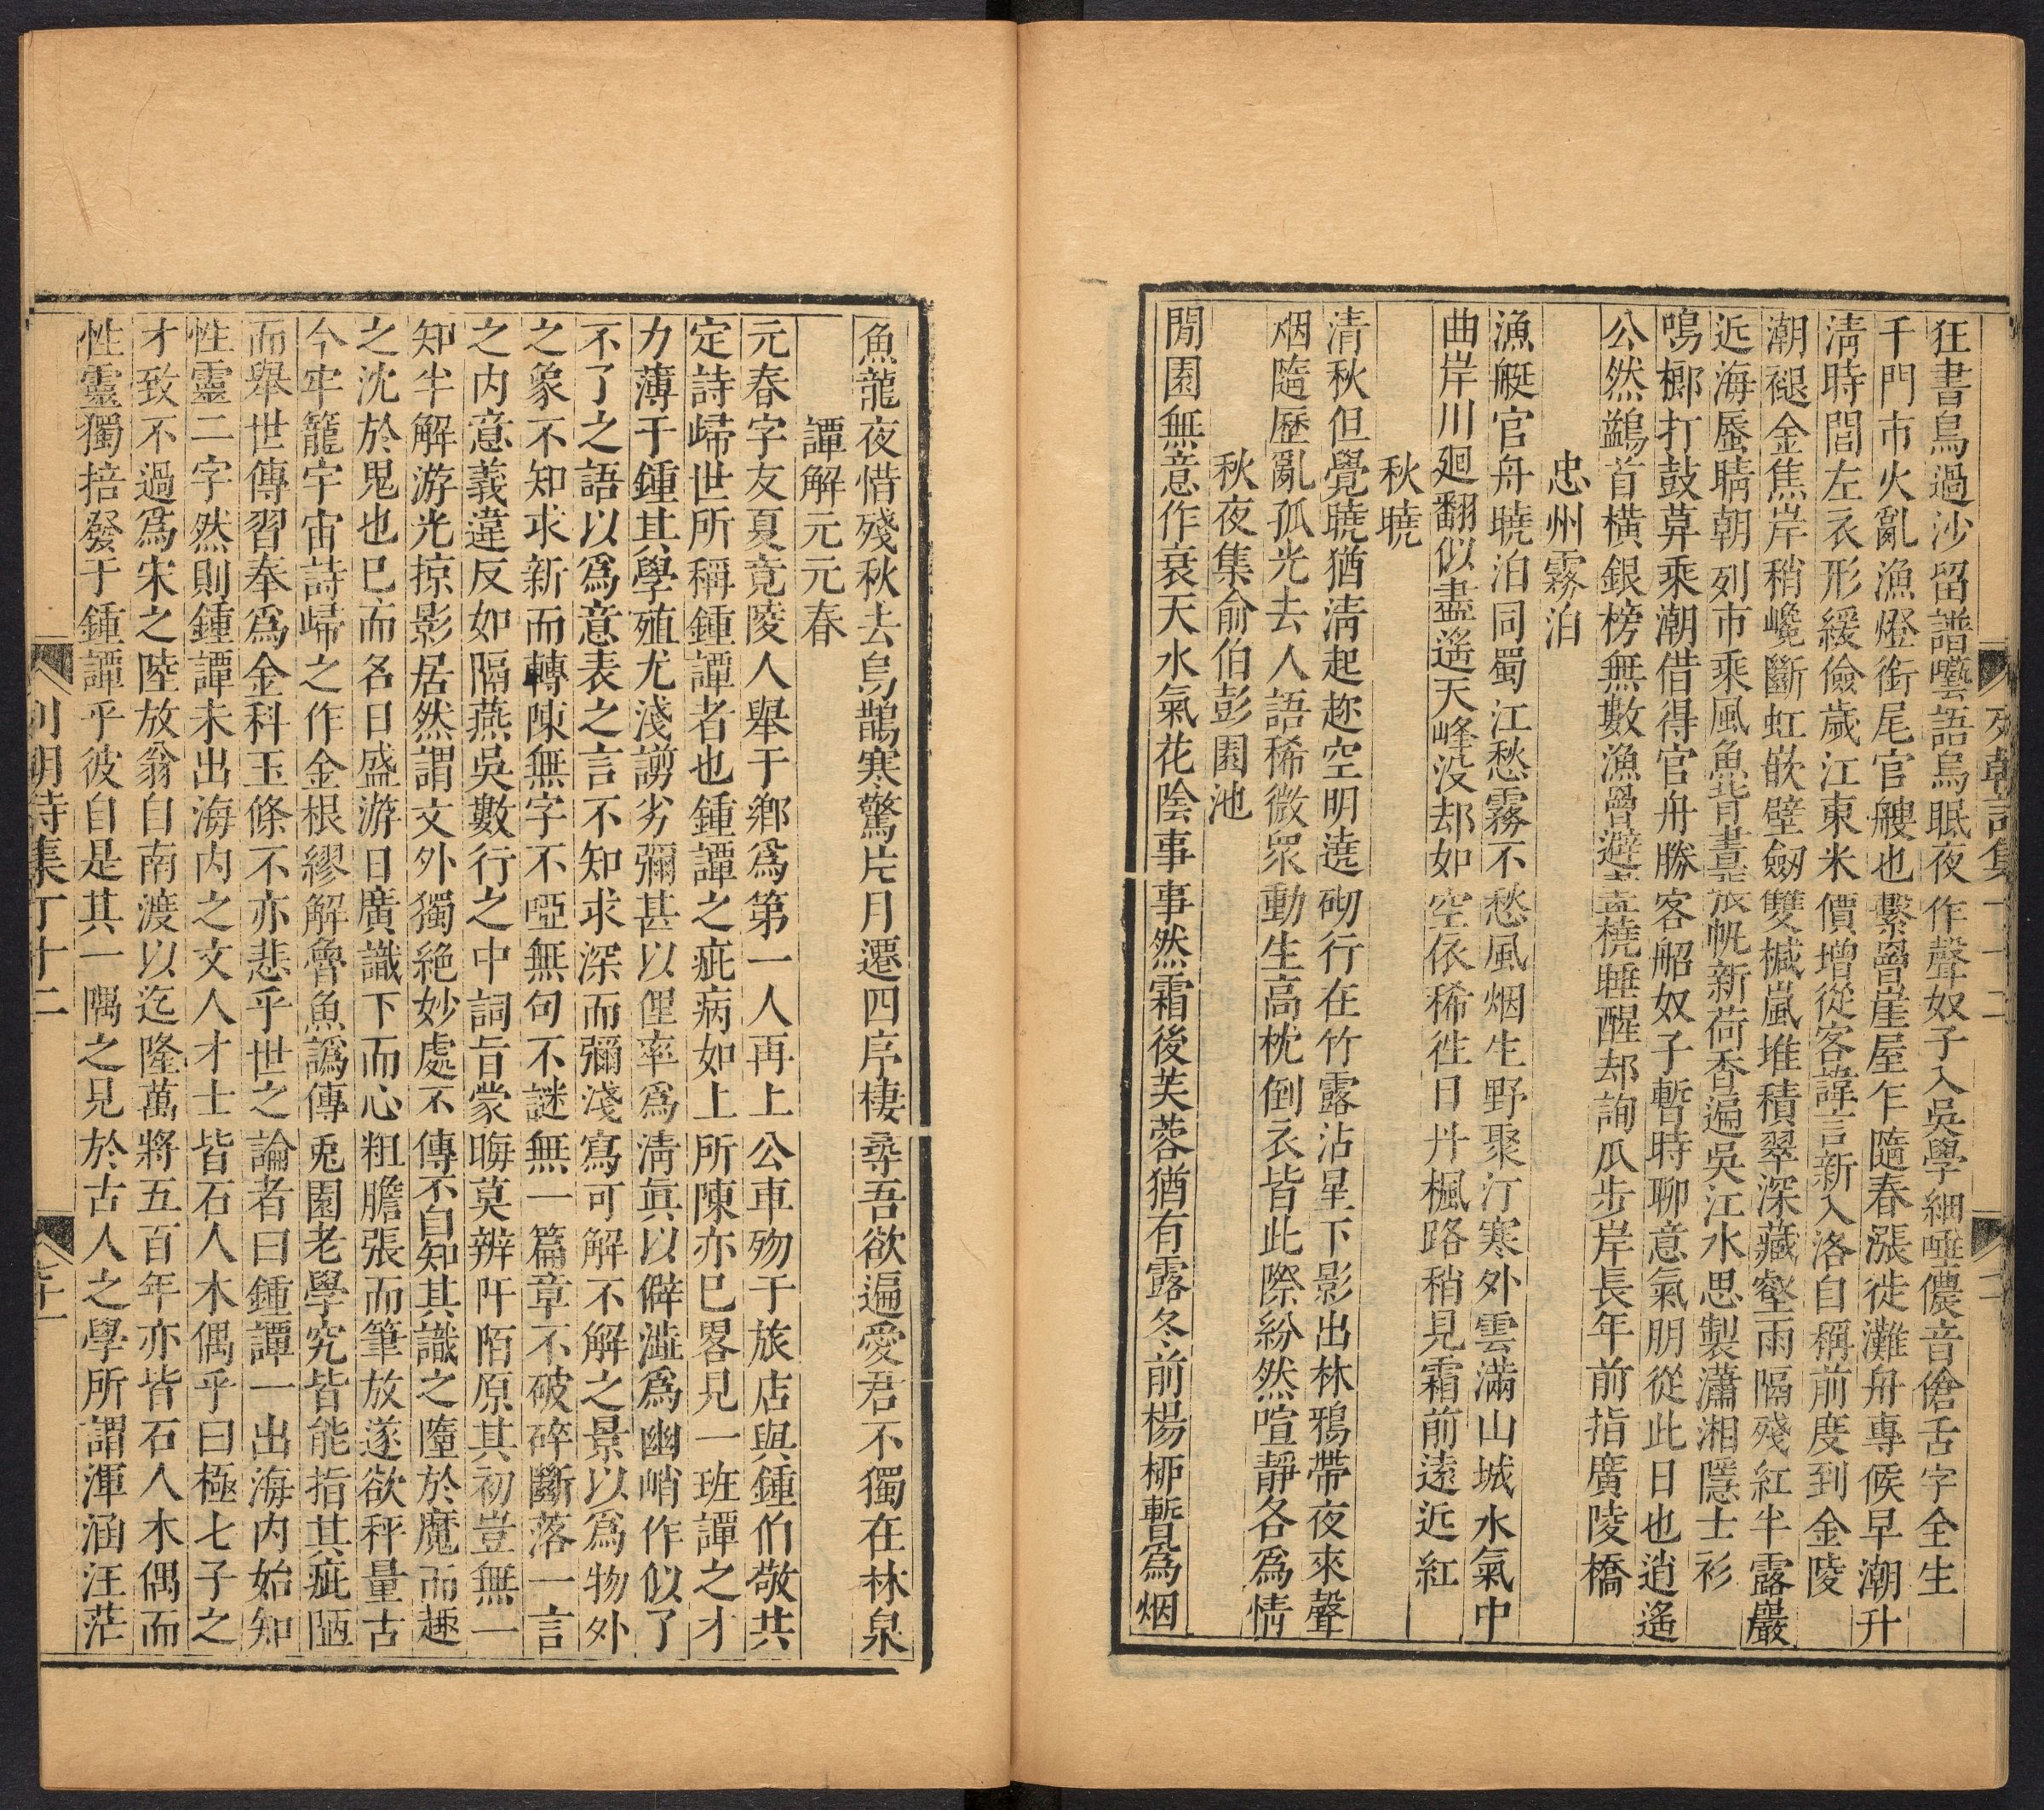 列朝詩集
狂書鳥過沙留譜囈語烏眠夜作聲奴子入吳學細唾儂音傖舌字全生
千門市火亂漁燈銜尾官艘也繫罾崖屋乍隨春漲徙灘舟專候早潮升
清時閭左衣形緩儉歲江東米價增從客諱言新入洛自稱前度到金陵
潮褪金焦岸稍巉斷虹嵌壁劒雙椷嵐堆積翠深藏壑雨隔殘紅半露巖
近海蜃晴朝列市乘風魚背晝張帆新荷香遍吳江水思製瀟湘隱士衫
鳴榔打鼓葬乘潮借得官舟勝客船奴子暫時聊意氣朋從此日也逍遙
公然鷁首橫銀榜無數漁罾避畫橈睡醒却詢瓜步岸長年前指廣陵橋
忠州霧泊
漁艇官舟曉泊同蜀江愁霧不愁風烟生野聚汀寒外雲滿山城水氣中
曲岸川廻翻似盡遙天峰没却如空依稀徃日丹楓路稍見霜前遠近紅
秋曉
清秋但覺曉猶淸起趂空明遶砌行在竹露沾星下影出林鴉帶夜來聲
烟隨歷亂孤光去人語稀微衆動生高枕倒衣皆此際紛然喧靜各爲情
秋夜集俞伯彭園池
閒園無意作衰天水氣花陰事事然霜後芙蓉猶有露冬前楊柳暫爲烟
魚龍夜惜殘秋去烏鵲寒驚片月遷四序棲尋吾欲遍愛君不獨在林泉
譚解元元春
元春字友夏竟陵人舉于鄉爲第一人再上公車殁于旅店與鍾伯敬共
定詩歸世所稱鍾譚者也鍾譚之疵病如上所陳亦巳畧見一班譚之才
力薄于鍾其學殖尤淺謭劣彌甚以俚率爲淸眞以僻澁爲幽峭作似了
不了之語以爲意表之言不知求深而彌淺寫可解不解之景以爲物外
之象不知求新而轉陳無字不啞無句不謎無一篇章不破碎斷落一言
之内意義違反如隔燕吳數行之中詞旨蒙晦莫辨阡陌原其初豈無一
知半解游光掠影居然謂文外獨絶妙處不傳不自知其識之墮於魔而趣
之沈於鬼也巳而名日盛游日廣識下而心粗膽張而筆放遂欲秤量古
今牢籠宇宙詩歸之作金根繆解魯魚譌傳兎園老學究皆能指其疵陋
而舉世傳習奉爲金科玉條不亦悲乎世之論者曰鍾譚一出海内始知
性靈二字然則鍾譚未出海内之文人才士皆石人木偶乎曰極七子之
才致不過爲宋之陸放翁自南渡以迄隆萬將五百年亦皆石人木偶而
性靈獨掊發于鍾譚乎彼自是其一隅之見於古人之學所謂渾涵汪茫
列朝詩集丁十二